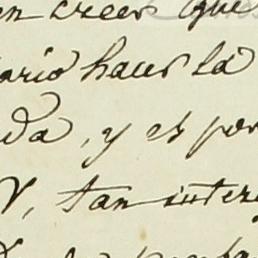 en creer que
ario hacer la
da, y es por
V, tan inter